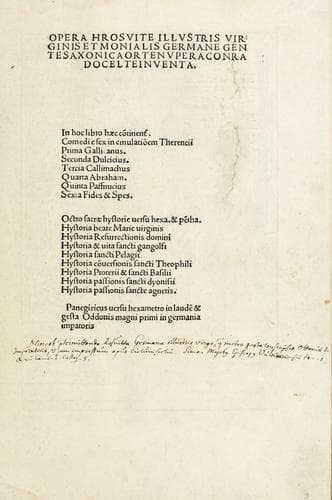 OPERA HROSVITE ILLVSTRIS VIR/
GINIS ET MONIALIS GERMANE GEN
TE SAXONICA ORTE NVPER A CONRA
DO CELTE INVENTA.
In hoc libro hæc cōtinent᷑.
Comedie sex in emulatiōem Therencii
Prima Gallicanus.
Secunda Dulcicius.
Tercia Callimachus
Quarta Abraham.
Quinta Paffnucius
Sexta Fides & Spes.
Octo sacræ hystorie versu hexa. & pētha.
Hystoria beate Marie virginis
Hystoria Resurrectionis domini
Hystoria & vita sancti gangolfi
Hystoria sancti Pelagii
Hystoria cōuersionis sancti Theophili
Hystoria Proterii & sancti Basilii
Hystoria passionis sancti dyonisii
Hystoria passionis sancte agnetis.
Panegiricus versu hexametro in laudē &
gesta Oddonis magni primi in germania
impatoris
Germana illustris virgo